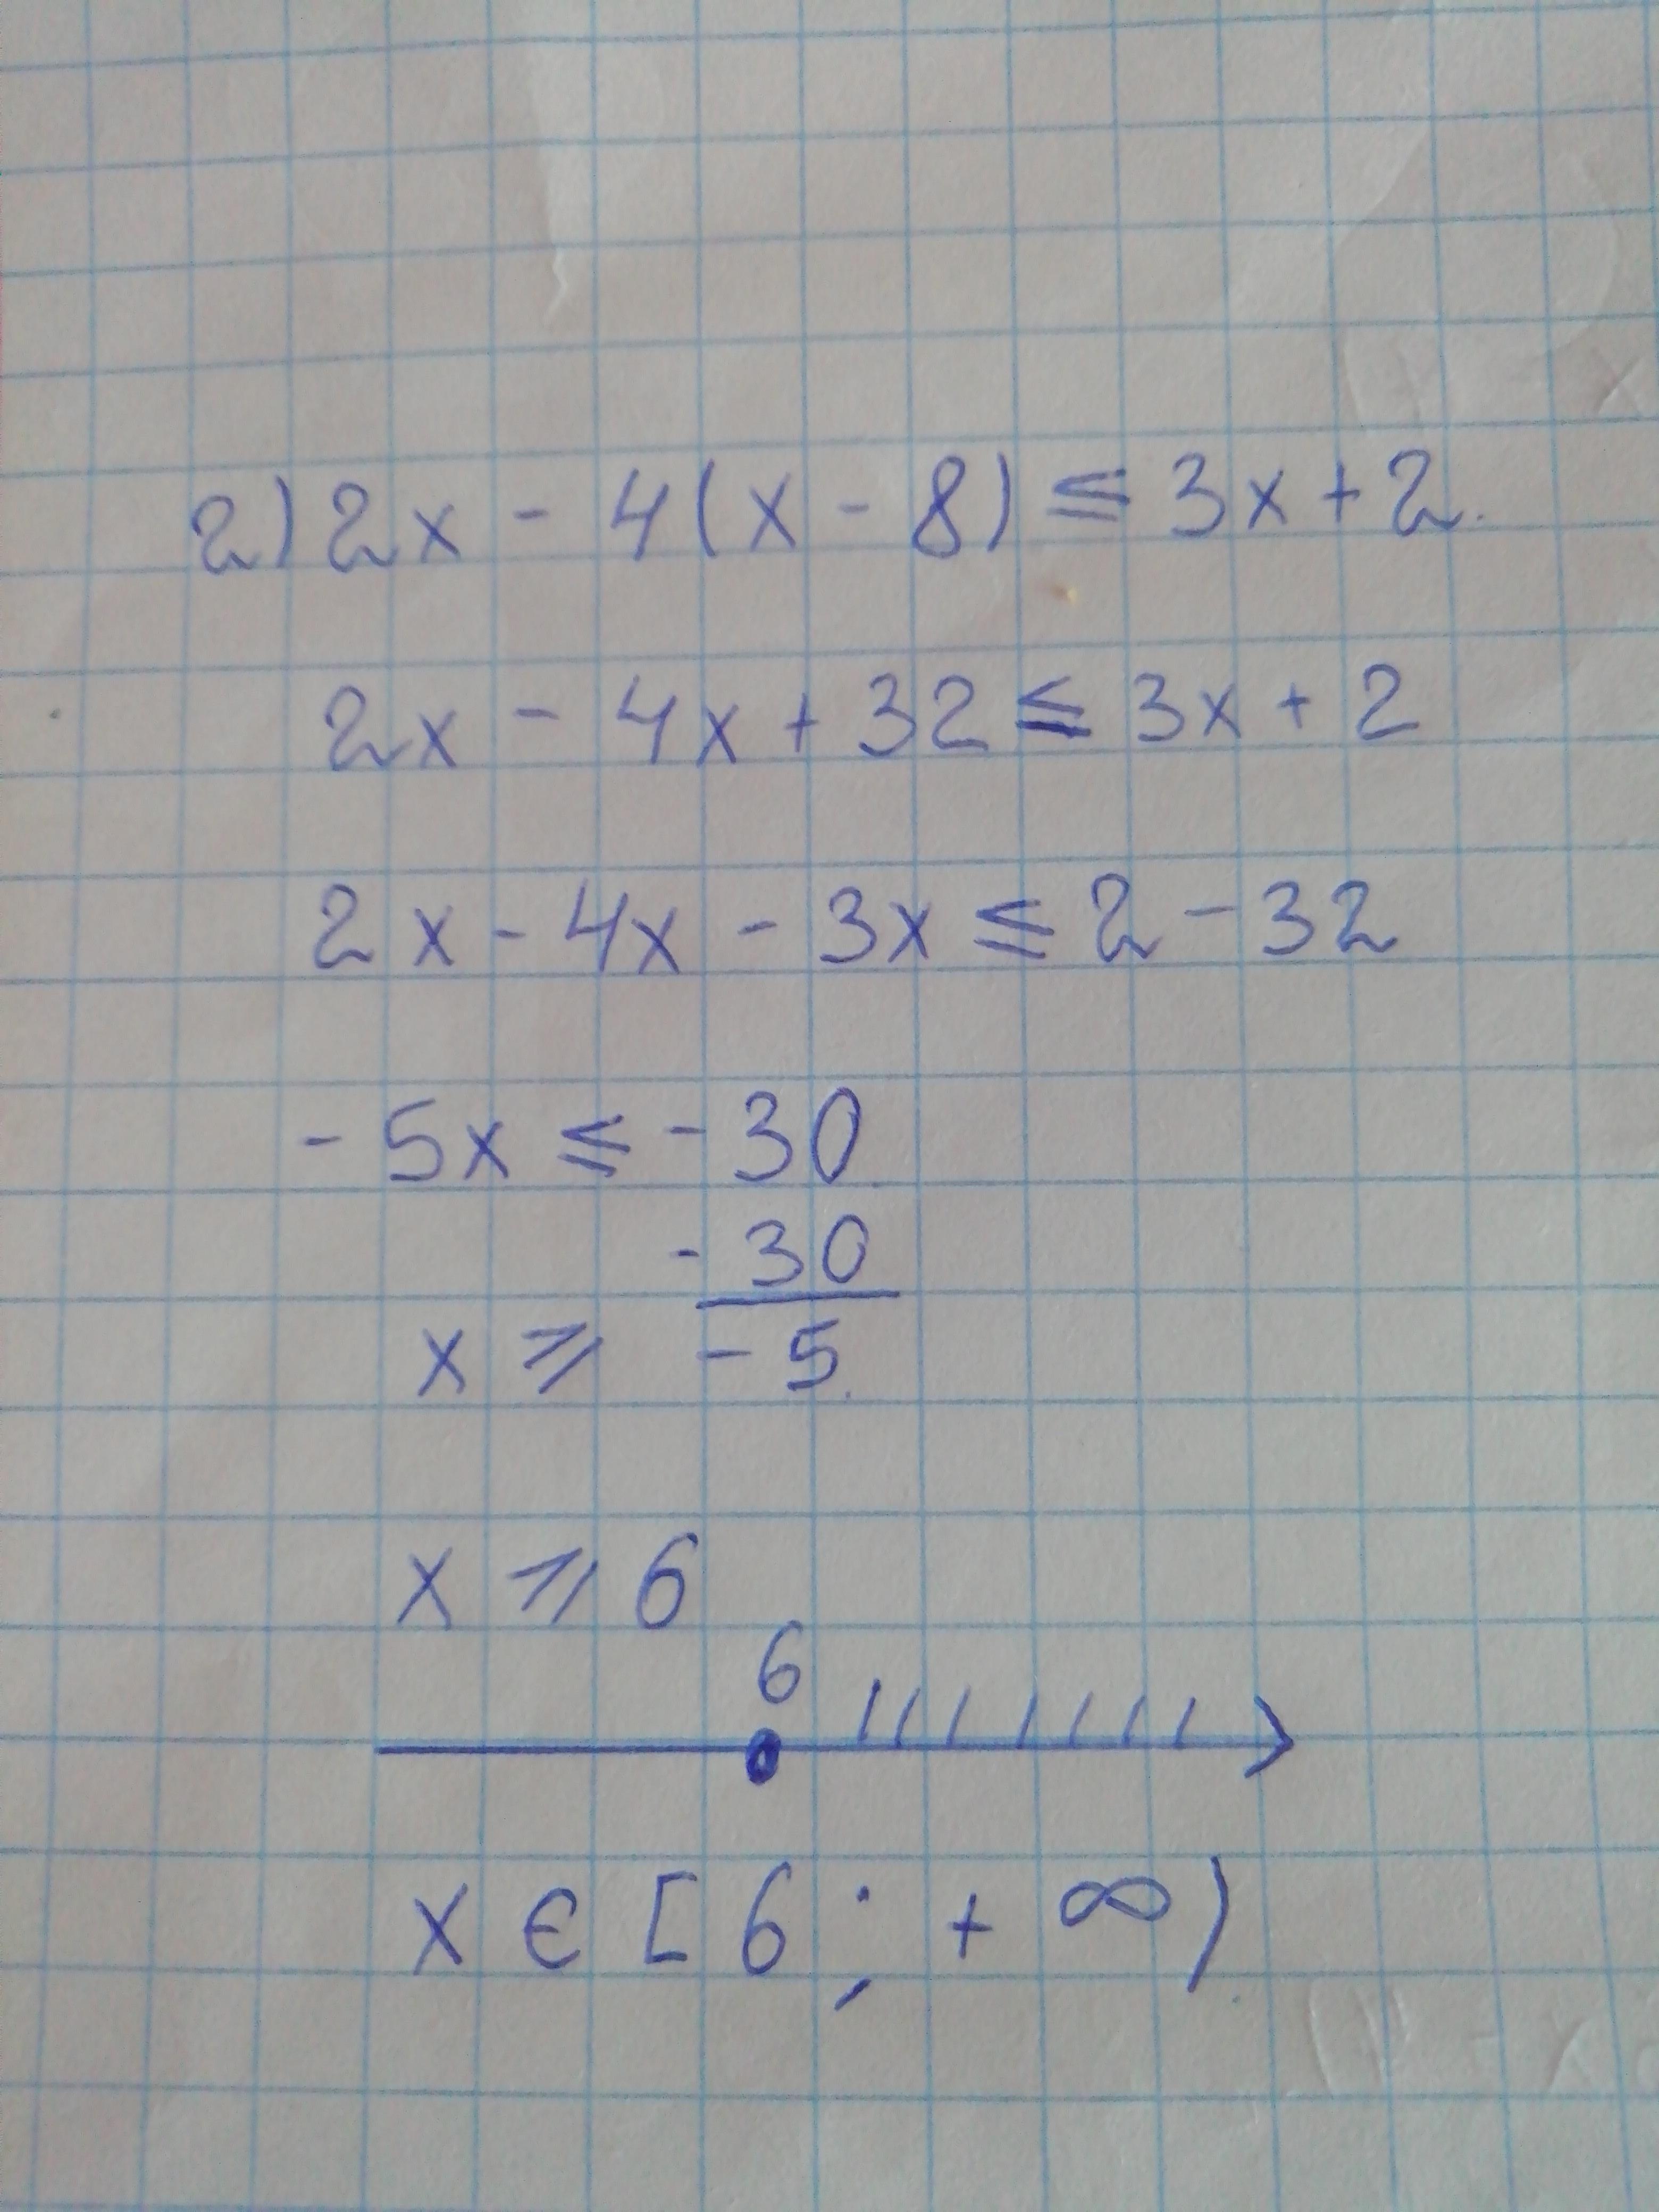 2) 2x - 4(x - 8) ≤ 3x + 2
2x - 4x + 32 ≤ 3x + 2
2x - 4x - 3x ≤ 2 - 32
- 5x ≤ - 30
x ≥ -30/-5
x ≥ 6
6
x ∈ [6; + ∞)